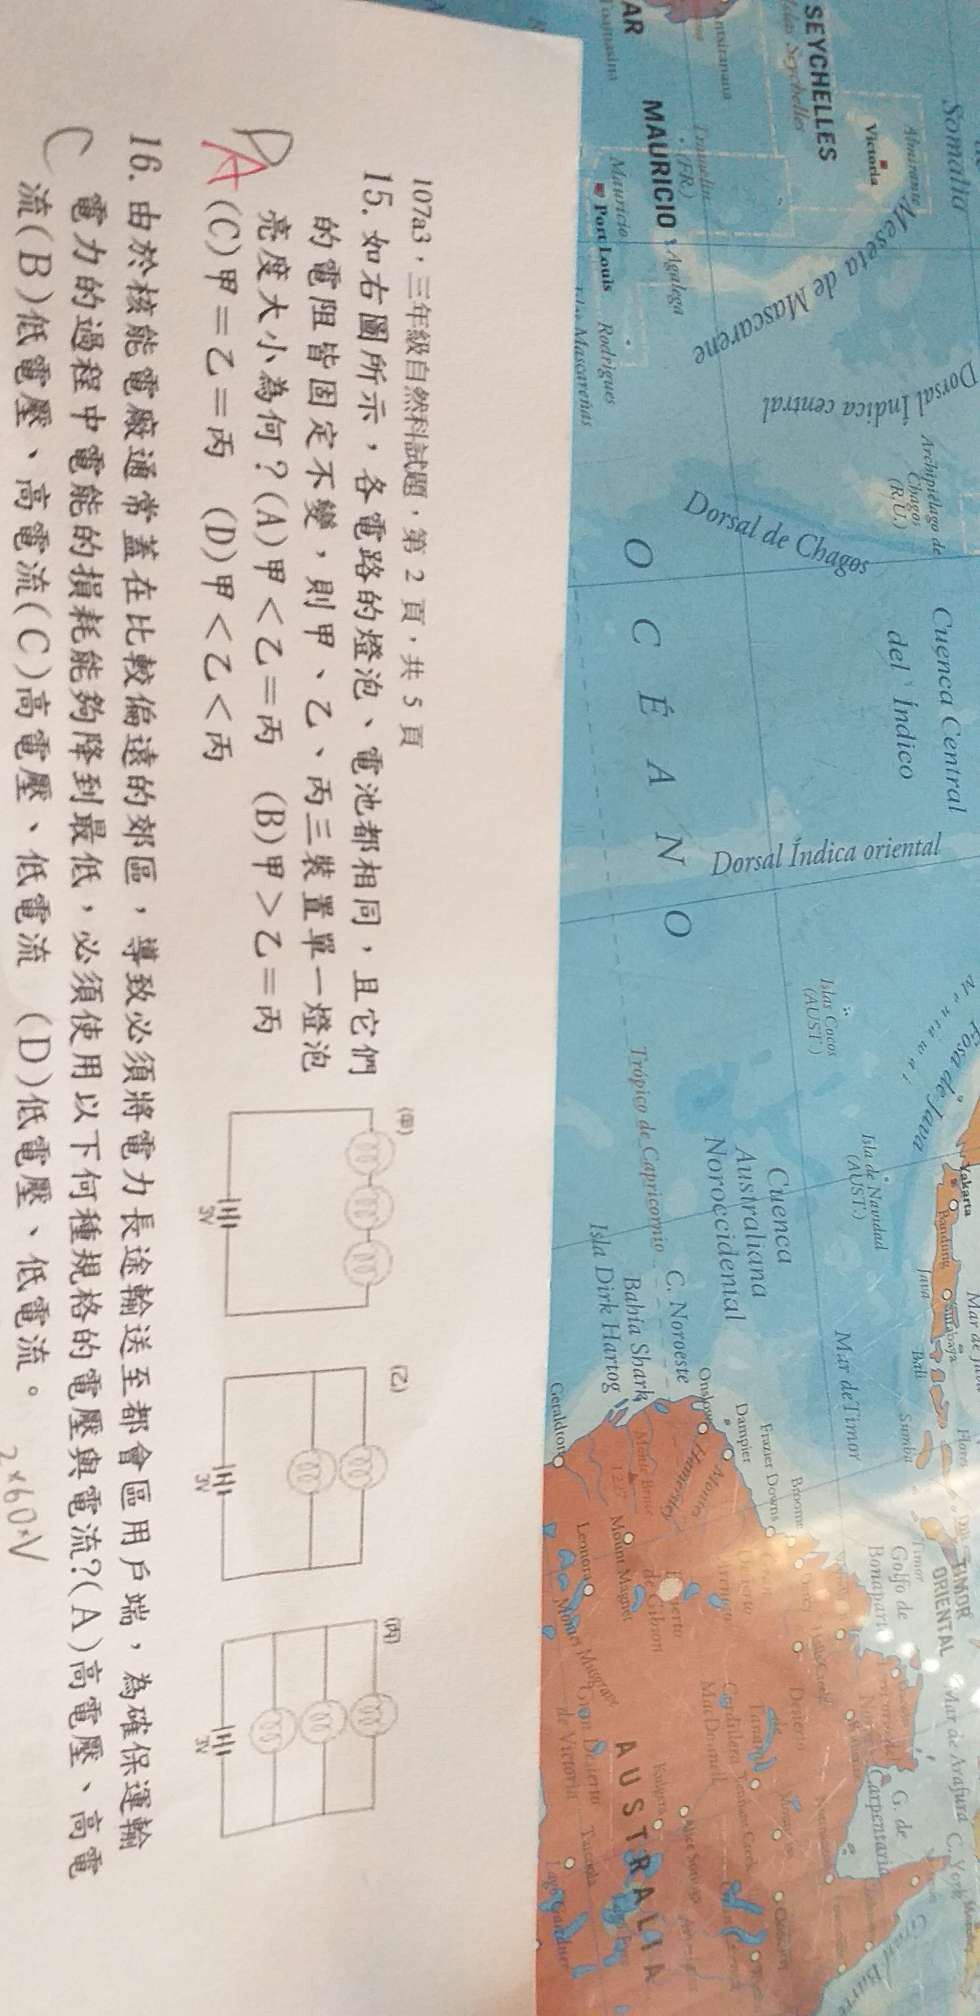 107a3，三年級自然科試題，第 2 頁，共 5 頁
15. 如右圖所示，各電路的燈泡、電池都相同，且它們
的電阻皆固定不變，則甲、乙、丙三裝置單一燈泡
亮度大小為何？(A)甲＜乙＝丙 (B)甲＞乙＝丙
(C)甲＝乙＝丙 (D)甲＜乙＜丙
D
A
(甲)
3V
(乙)
3V
(丙)
3V
16. 由於核能電廠通常蓋在比較偏遠的郊區，導致必須將電力長途輸送至都會區用戶端，為確保運輸
電力的過程中電能的損耗能夠降到最低，必須使用以下何種規格的電壓與電流?(A)高電壓、高電
流(B)低電壓、高電流(C)高電壓、低電流 (D)低電壓、低電流。
C
2×60×V
Somalia
SEYCHELLES
Islas Seychelles
Victoria
Almirante
Meseta de Mascarene
Antsiranana
MAURICIO
Agalega
Mauricio
Port Louis
Rodrigues
Islas Mascareñas
Toamasina
Dorsal Índica central
Archipiélago de
Chagos
(R.U.)
Dorsal de Chagos
Cuenca Central
del Índico
OCÉANO
Dorsal Índica oriental
Islas Cocos
(AUST.)
Fosa de Java
Trópico de Capricornio
Isla de Navidad
(AUST.)
Yakarta
Bandung
Java
Surabaya
Bali
Sumba
Mar de Timor
Cuenca
Australiana
Noroccidental
C. Noroeste
Bahía Shark
Isla Dirk Hartog
Geraldton
Onslow
Dampier
Broome
Frazier Downs
Mount Magnet
Leonora
TIMOR
ORIENTAL
Timor
Golfo de
Bonaparte
Mar de Arafura
C. York
G. de
Carpentaria
AUSTRALIA